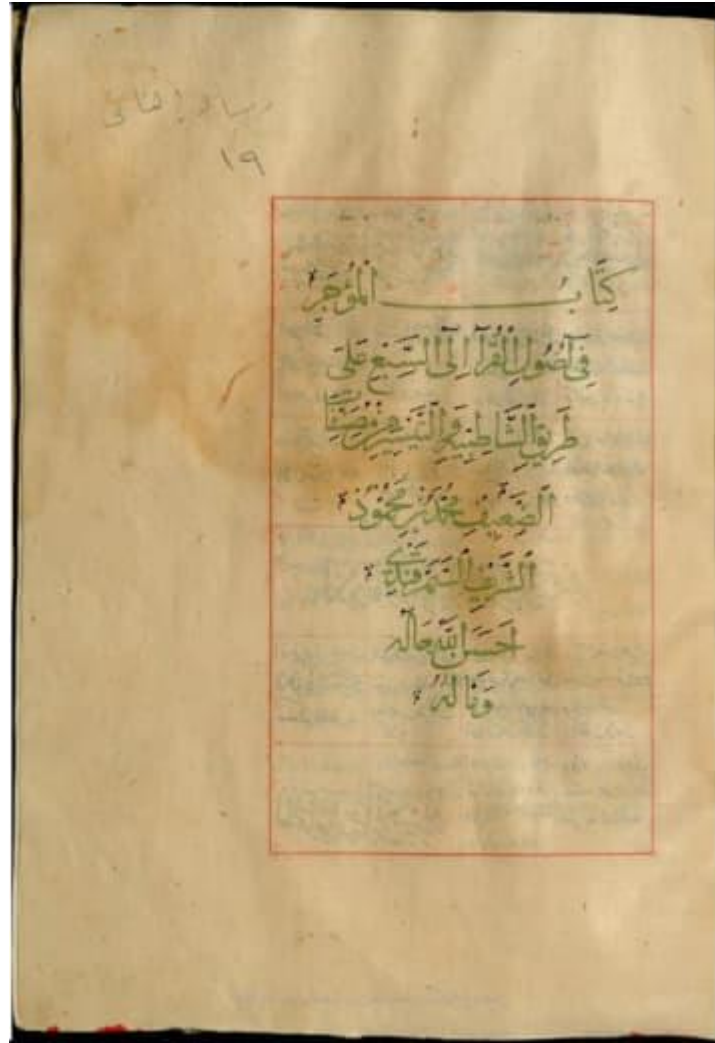 ١٩
كِتَابُ الْمُؤَهَرِ
فِي أُصُولِ الْقُرْآ إِلَى السَّبْعِ عَلَى
طَرِيقِ الشَّاطِبِيَّةِ وَالتَّيْسِيرِ مِنْ
الضَّعِيفِ مُحَمَّدِ بْنِ مَحْمُودٍ
الشَّرِيفِ السَّمَرْقَنْدِيِّ
اَحْسَنَ اللّٰهُ حَالَهُ
وَنَالَهُ